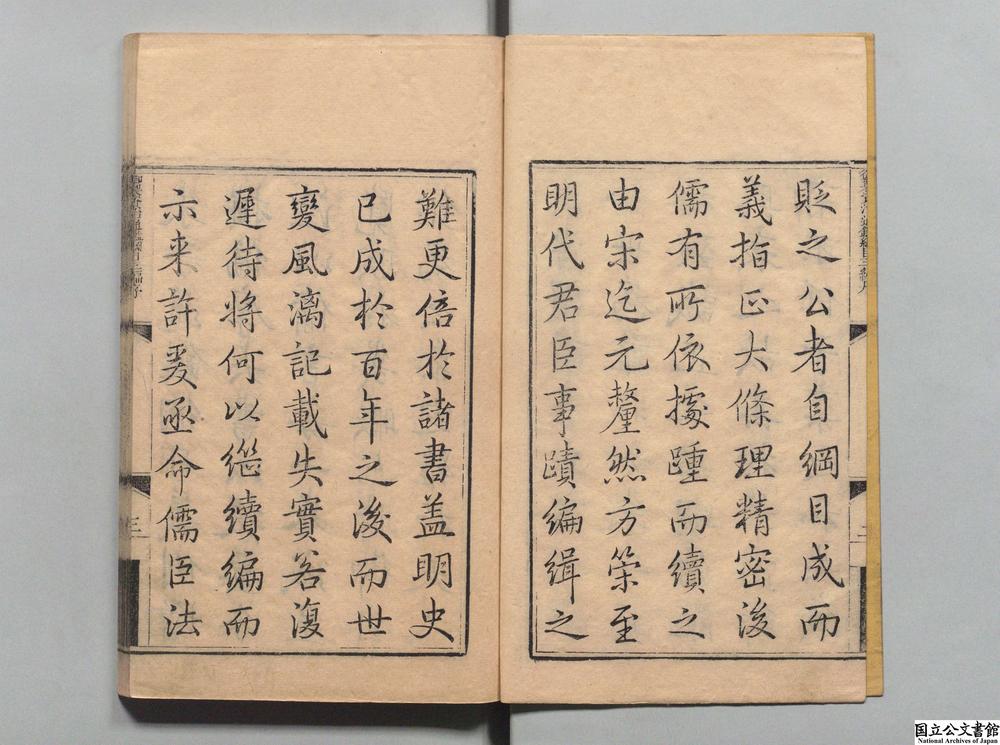 貶之公者自綱目成而
義指正大條理精密後
儒有所依據踵而續之
由宋迄元釐然方策至
明代君臣事蹟編緝之
難更倍於諸書蓋明史
已成於百年之後而世
變風漓記載失實若復
遲待將何以繼續編而
示来許爰亟命儒臣法
三
国立公文書館
National Archives of Japan